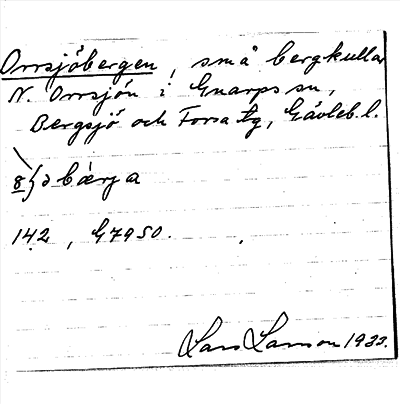 Orrsjöbergen, små bergkullar
N. Orrsjön i Gnarps sn,
Bergsjö och Forsa tg, Gävleb. l.
bærja
142, G7950.
Lars Larsson 1933.